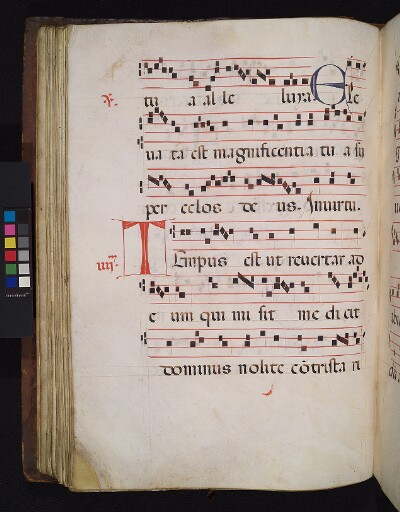 ℣. tu a al le luya E le
ua ta est magnificentia tu a su
per celos de us. In uirtu.
iiij. Tempus est ut reuertar ad
e um qui mi sit me di cit
dominus nolite cõtrista ri